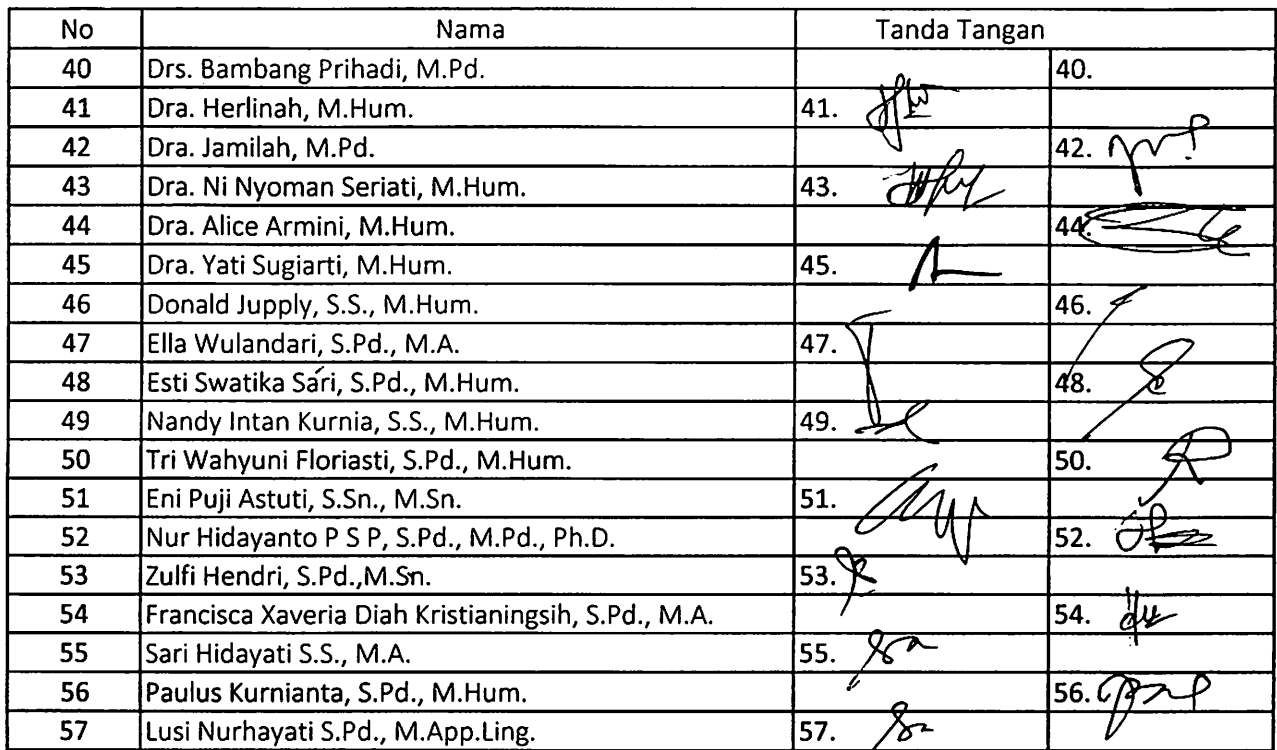 No Nama Tanda Tangan
40 Drs. Bambang Prihadi, M.Pd. 40.
41 Dra. Herlinah, M.Hum. 41.
42 Dra. Jamilah, M.Pd. 42.
43 Dra. Ni Nyoman Seriati, M.Hum. 43.
44 Dra. Alice Armini, M.Hum. 44.
45 Dra. Yati Sugiarti, M.Hum. 45.
46 Donald Jupply, S.S., M.Hum. 46.
47 Ella Wulandari, S.Pd., M.A. 47.
48 Esti Swatika Sari, S.Pd., M.Hum. 48.
49 Nandy Intan Kurnia, S.S., M.Hum. 49.
50 Tri Wahyuni Floriasti, S.Pd., M.Hum. 50.
51 Eni Puji Astuti, S.Sn., M.Sn. 51.
52 Nur Hidayanto P S P, S.Pd., M.Pd., Ph.D. 52.
53 Zulfi Hendri, S.Pd.,M.Sn. 53.
54 Francisca Xaveria Diah Kristianingsih, S.Pd., M.A. 54.
55 Sari Hidayati S.S., M.A. 55.
56 Paulus Kurnianta, S.Pd., M.Hum. 56.
57 Lusi Nurhayati S.Pd., M.App.Ling. 57.